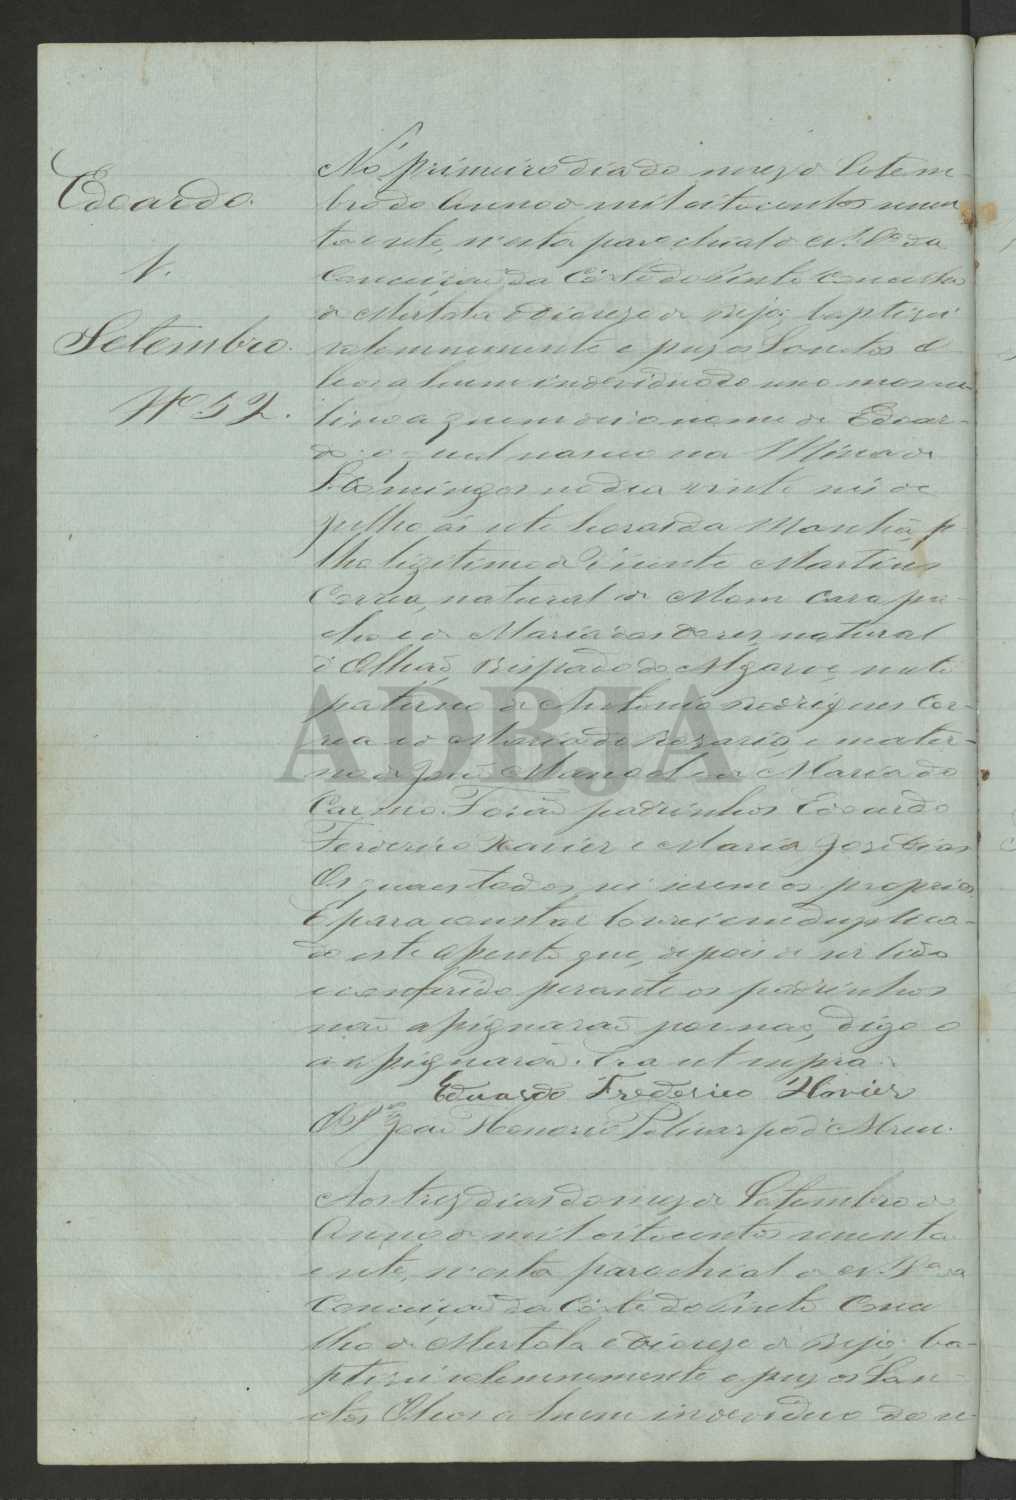 Edoardo.
1.
Setembro.
Nº 52.
No primeiro dia do mez de Setem-
bro do Anno de mil oitocentos secen
ta e sete, n'esta parochial de N. Srª da
Conceição da Côrte do Pinto Concelho
de Mertola e Dioceze de Beja, baptizei
solemnemente e puz os Santos O
leos a hum individuo do sexo mascu-
lino a quem dei o nome de Edoar-
do: o qual nasceo na Mina de
S. Domingos no dia vinte seis de
Julho ás sete horas da Manhã, fi
lho legitimo de Vicente Martins
Correa, natural de Mon Carapa-
cho e de Maria das Dores, natural
d' Olhão, Bispado do Algarve, neto
paterno de Antonio Rodrigues Cor-
rea e de Maria do Rozario, e mater-
no de João Manoel e de Maria do
Carmo. Forão padrinhos Edoardo
Frederico Xavier e Maria José Dias
Os quaes todos sei serem os proprios
E para constar lavrei em duplica-
do este assento que, depois de ser lido
e conferido perante os padrinhos
não assignarão por não, digo o
assignarão. Era ut supra.
Eduardo Frederico Xavier
O P. João Honorio d'Abreu.
Aos trez dias do mez de Setembro do
Anno de mil oitocentos secenta
e sete, n'esta parochial de N. Srª da
Conceição da Côrte do Pinto Conce
lho de Mertola e Dioceze de Beja, ba-
ptizei solemnemente e puz os San-
tos Oleos a hum individuo do se-
ADBJA